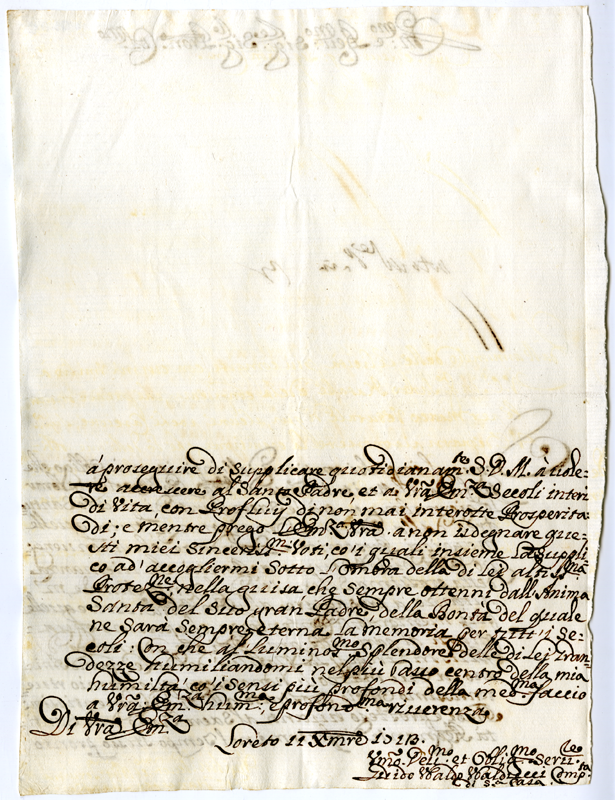 á proseguire di supplicare quotidianam.te S. D. M. a uole-
re accrescere al Santo Padre, et a Vrã Em.za Secoli interi
di Vita, con Profluuij di non mai interotte Prosperita-
di; e mentre prego l'Em.za Vrã a non isdegnare que-
sti miei sincerissi.mi Voti, co' i quali insieme la suppli-
co ad' accogliermi sotto l'ombra della di Lei altiss.ma
Protez.ne, nella guisa che sempre ottenni dall'Anima
Santa del suo gran Padre, della Bontà del quale
ne sarà sempre eterna la memoria per tutt' i Se-
coli: Con che al Luminos.mo Splendore delle di Lei Gran-
dezze humiliandomi nel più basso centro della mia
humiltà, co' i sensi più profondi della med.ma faccio
a Vrã Em.za hum.ma, e profond.ma riuerenza,
Di Vrã Em.za
Loreto 11 Xmre 1713.
Vmo. Deu.mo et Obblig.mo Seruit.re
Guido Vbaldo
di S.a Casa